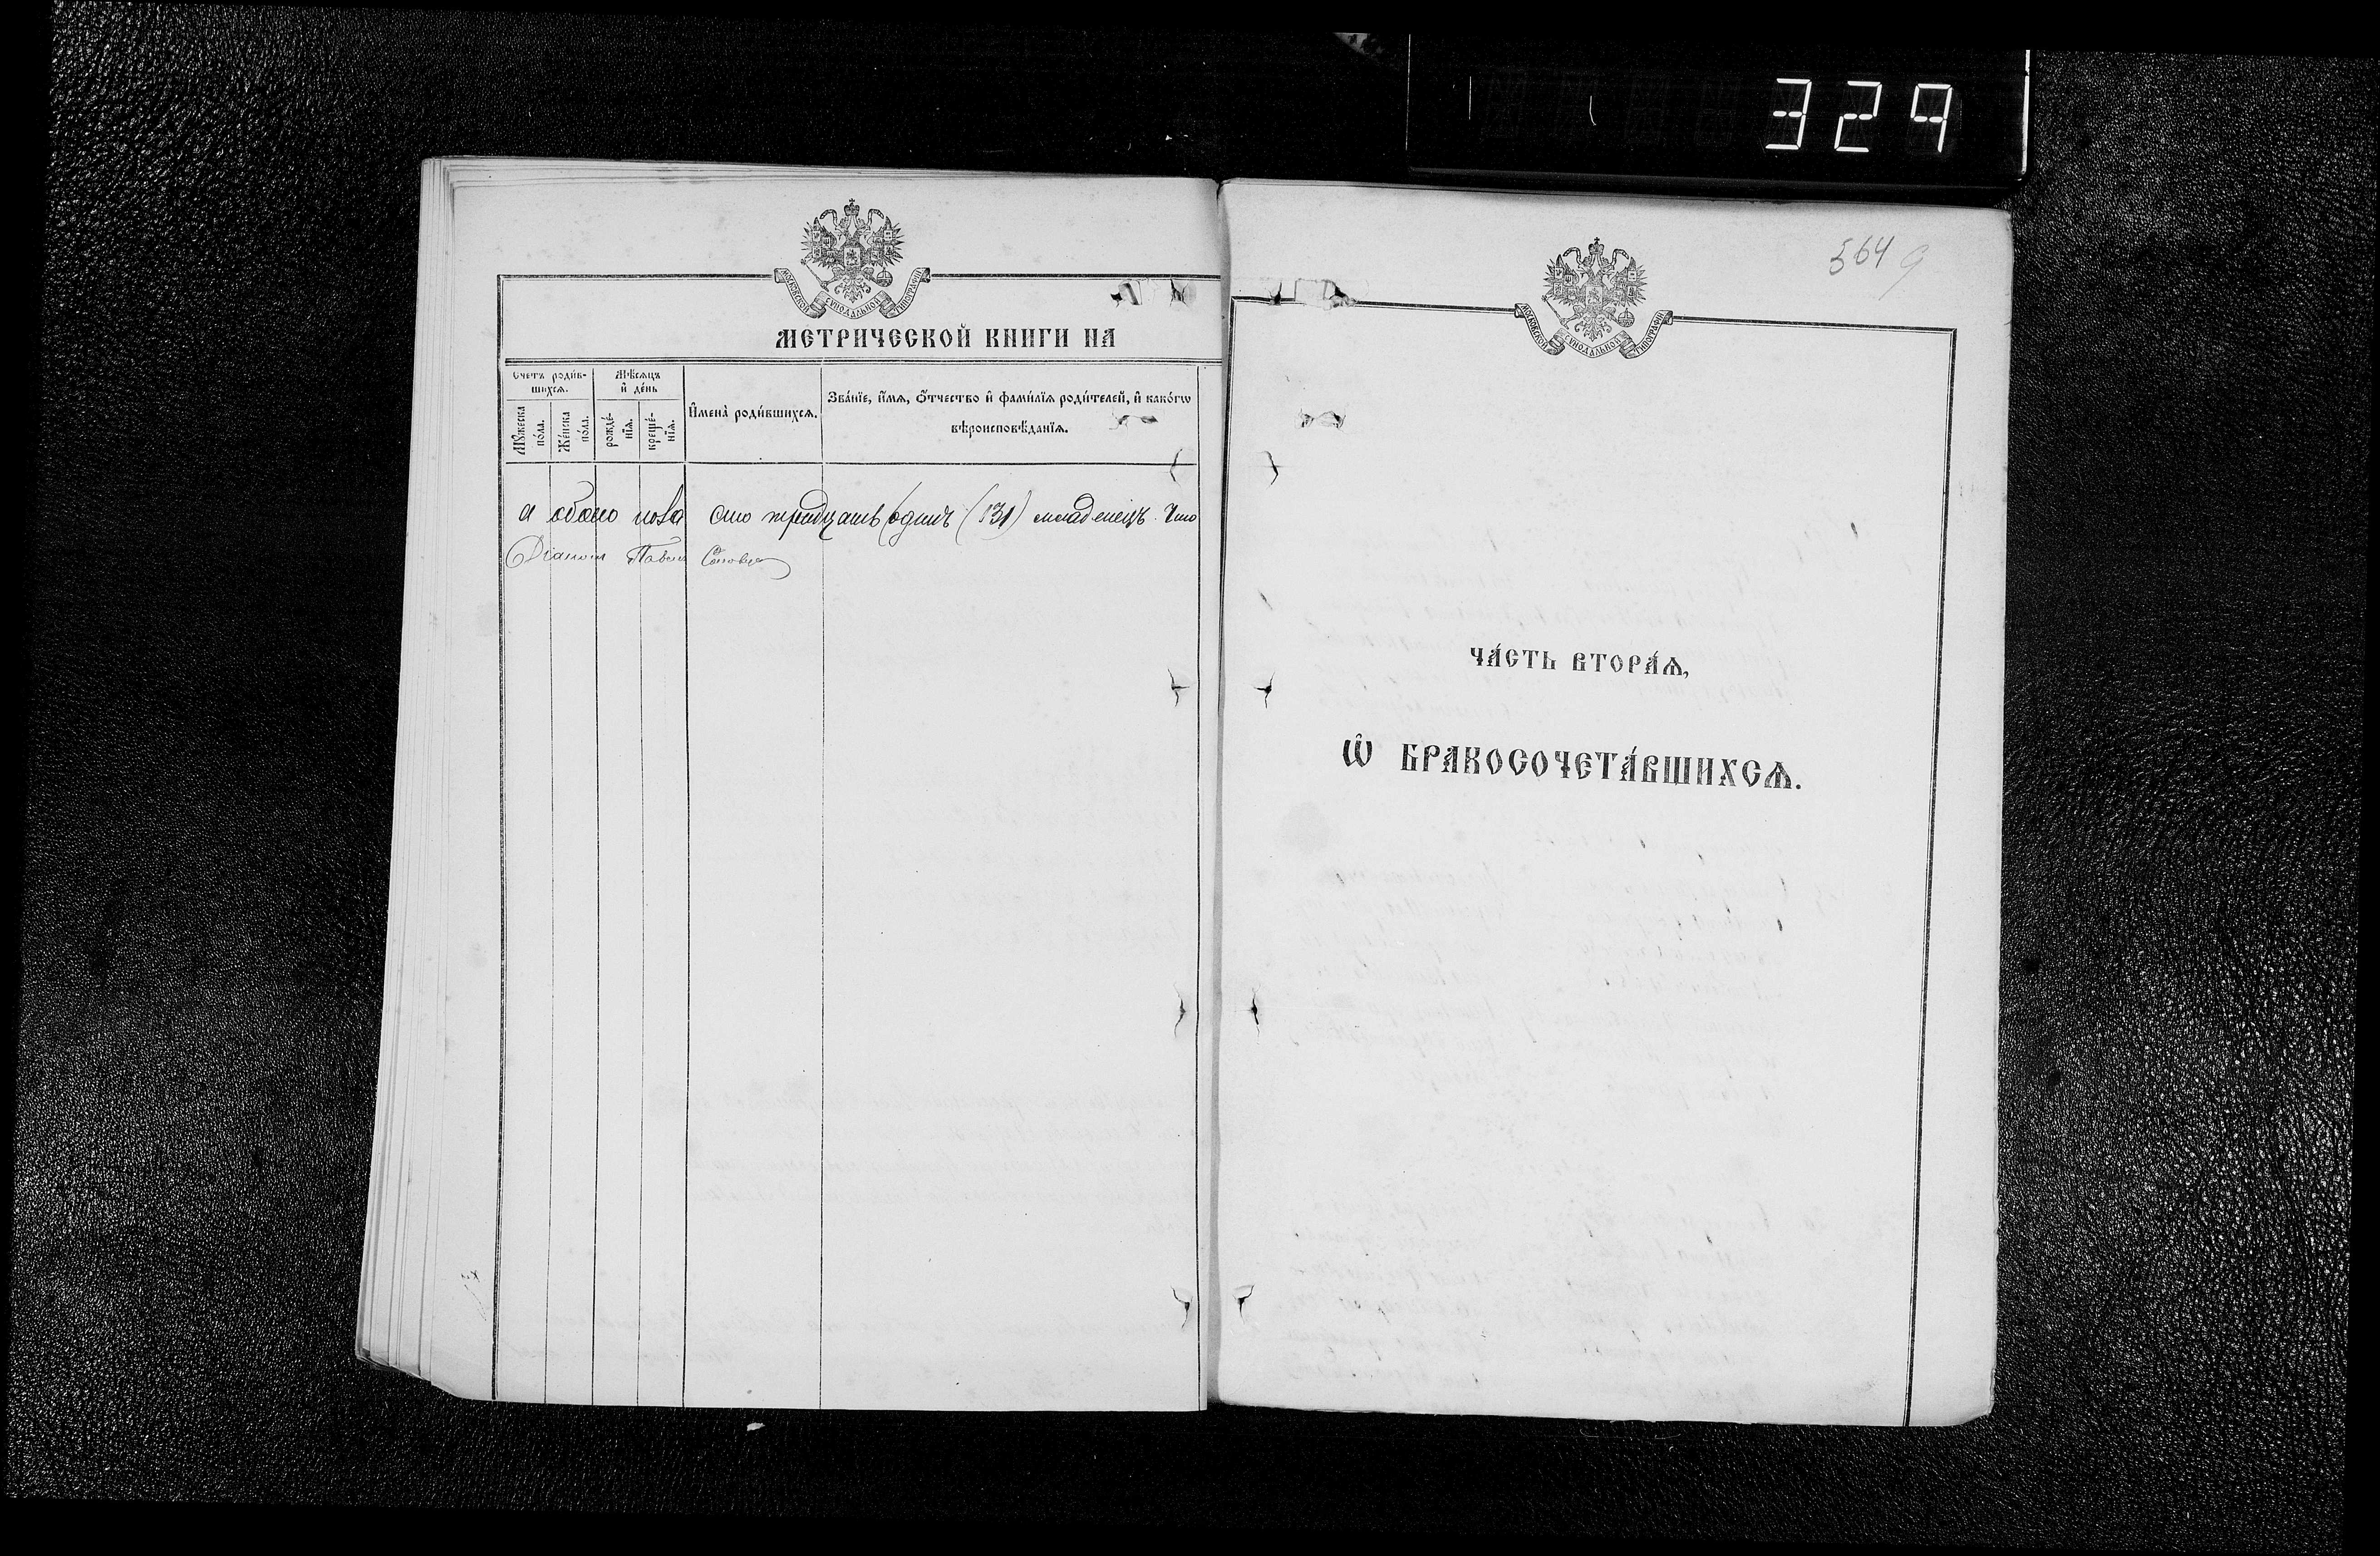 329
МОСКОВСКОЙ СѴНОДАЛЬНОЙ ТИПОГРАФІИ
МЕТРИЧЕСКОЙ КНИГИ НА
Счетъ роди́в-
шихсѧ.
Мѣсѧцъ
и҆ де́нь
Мꙋ́жеска
по́ла.
Же́нска
по́ла.
рожде́-
нїѧ.
креще́-
нїѧ.
И҆мена̀ роди́вшихсѧ.
Зва́нїе, и҆́мѧ, ѻ҆́тчество и҆ фами́лїѧ роди́телей, и҆ како́гѡ
вѣроисповѣ́данїѧ.
а обоего пола сто тридцать одинъ (131) младенецъ. Что
Діаконъ Павелъ
564 9
МОСКОВСКОЙ СѴНОДАЛЬНОЙ ТИПОГРАФІИ
ЧА́СТЬ ВТОРА́Ѧ,
Ѡ҆ БРАКОСОЧЕТА́ВШИХСѦ.